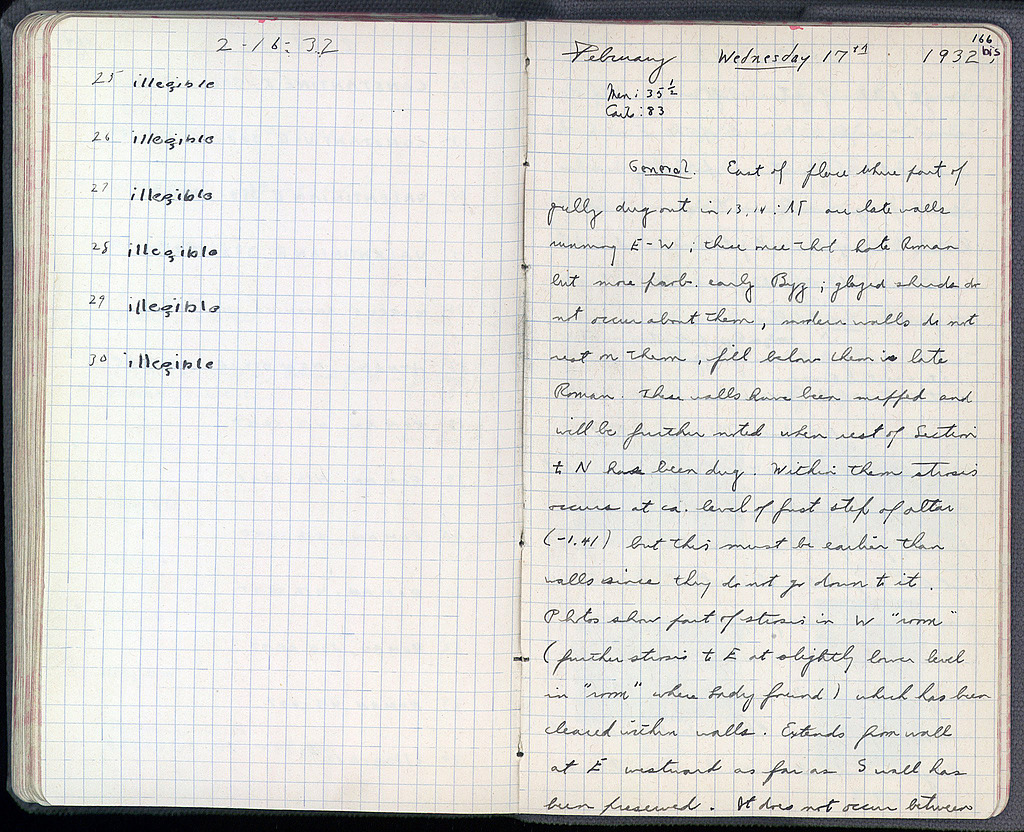 2-16-32
25 illegible
26 illegible
27 illegible
28 illegible
29 illegible
30 illegible
166 bis
February Wednesday 17th 1932
Men: 35 1/2
Cart: 83
General. East of place where part of
gully dug out in 13,14: are late walls
running E-W; these once late Roman
but more prob. early Byz; glazed sherds do
not occur about them, modern walls do not
rest on them, fill below them is late
Roman. These walls have been mapped and
will be further noted when rest of Section
to N has been dug. Within them strosis
occurs at ca. level of first step of altar
(-1.41) but this must be earlier than
walls since they do not go down to it.
Photos show part of strosis in W "room"
(further strosis to E at slightly lower level
in "room" where found) which has been
cleared within walls. Extends from wall
at E westward as far as S wall has
been preserved. It does not occur between